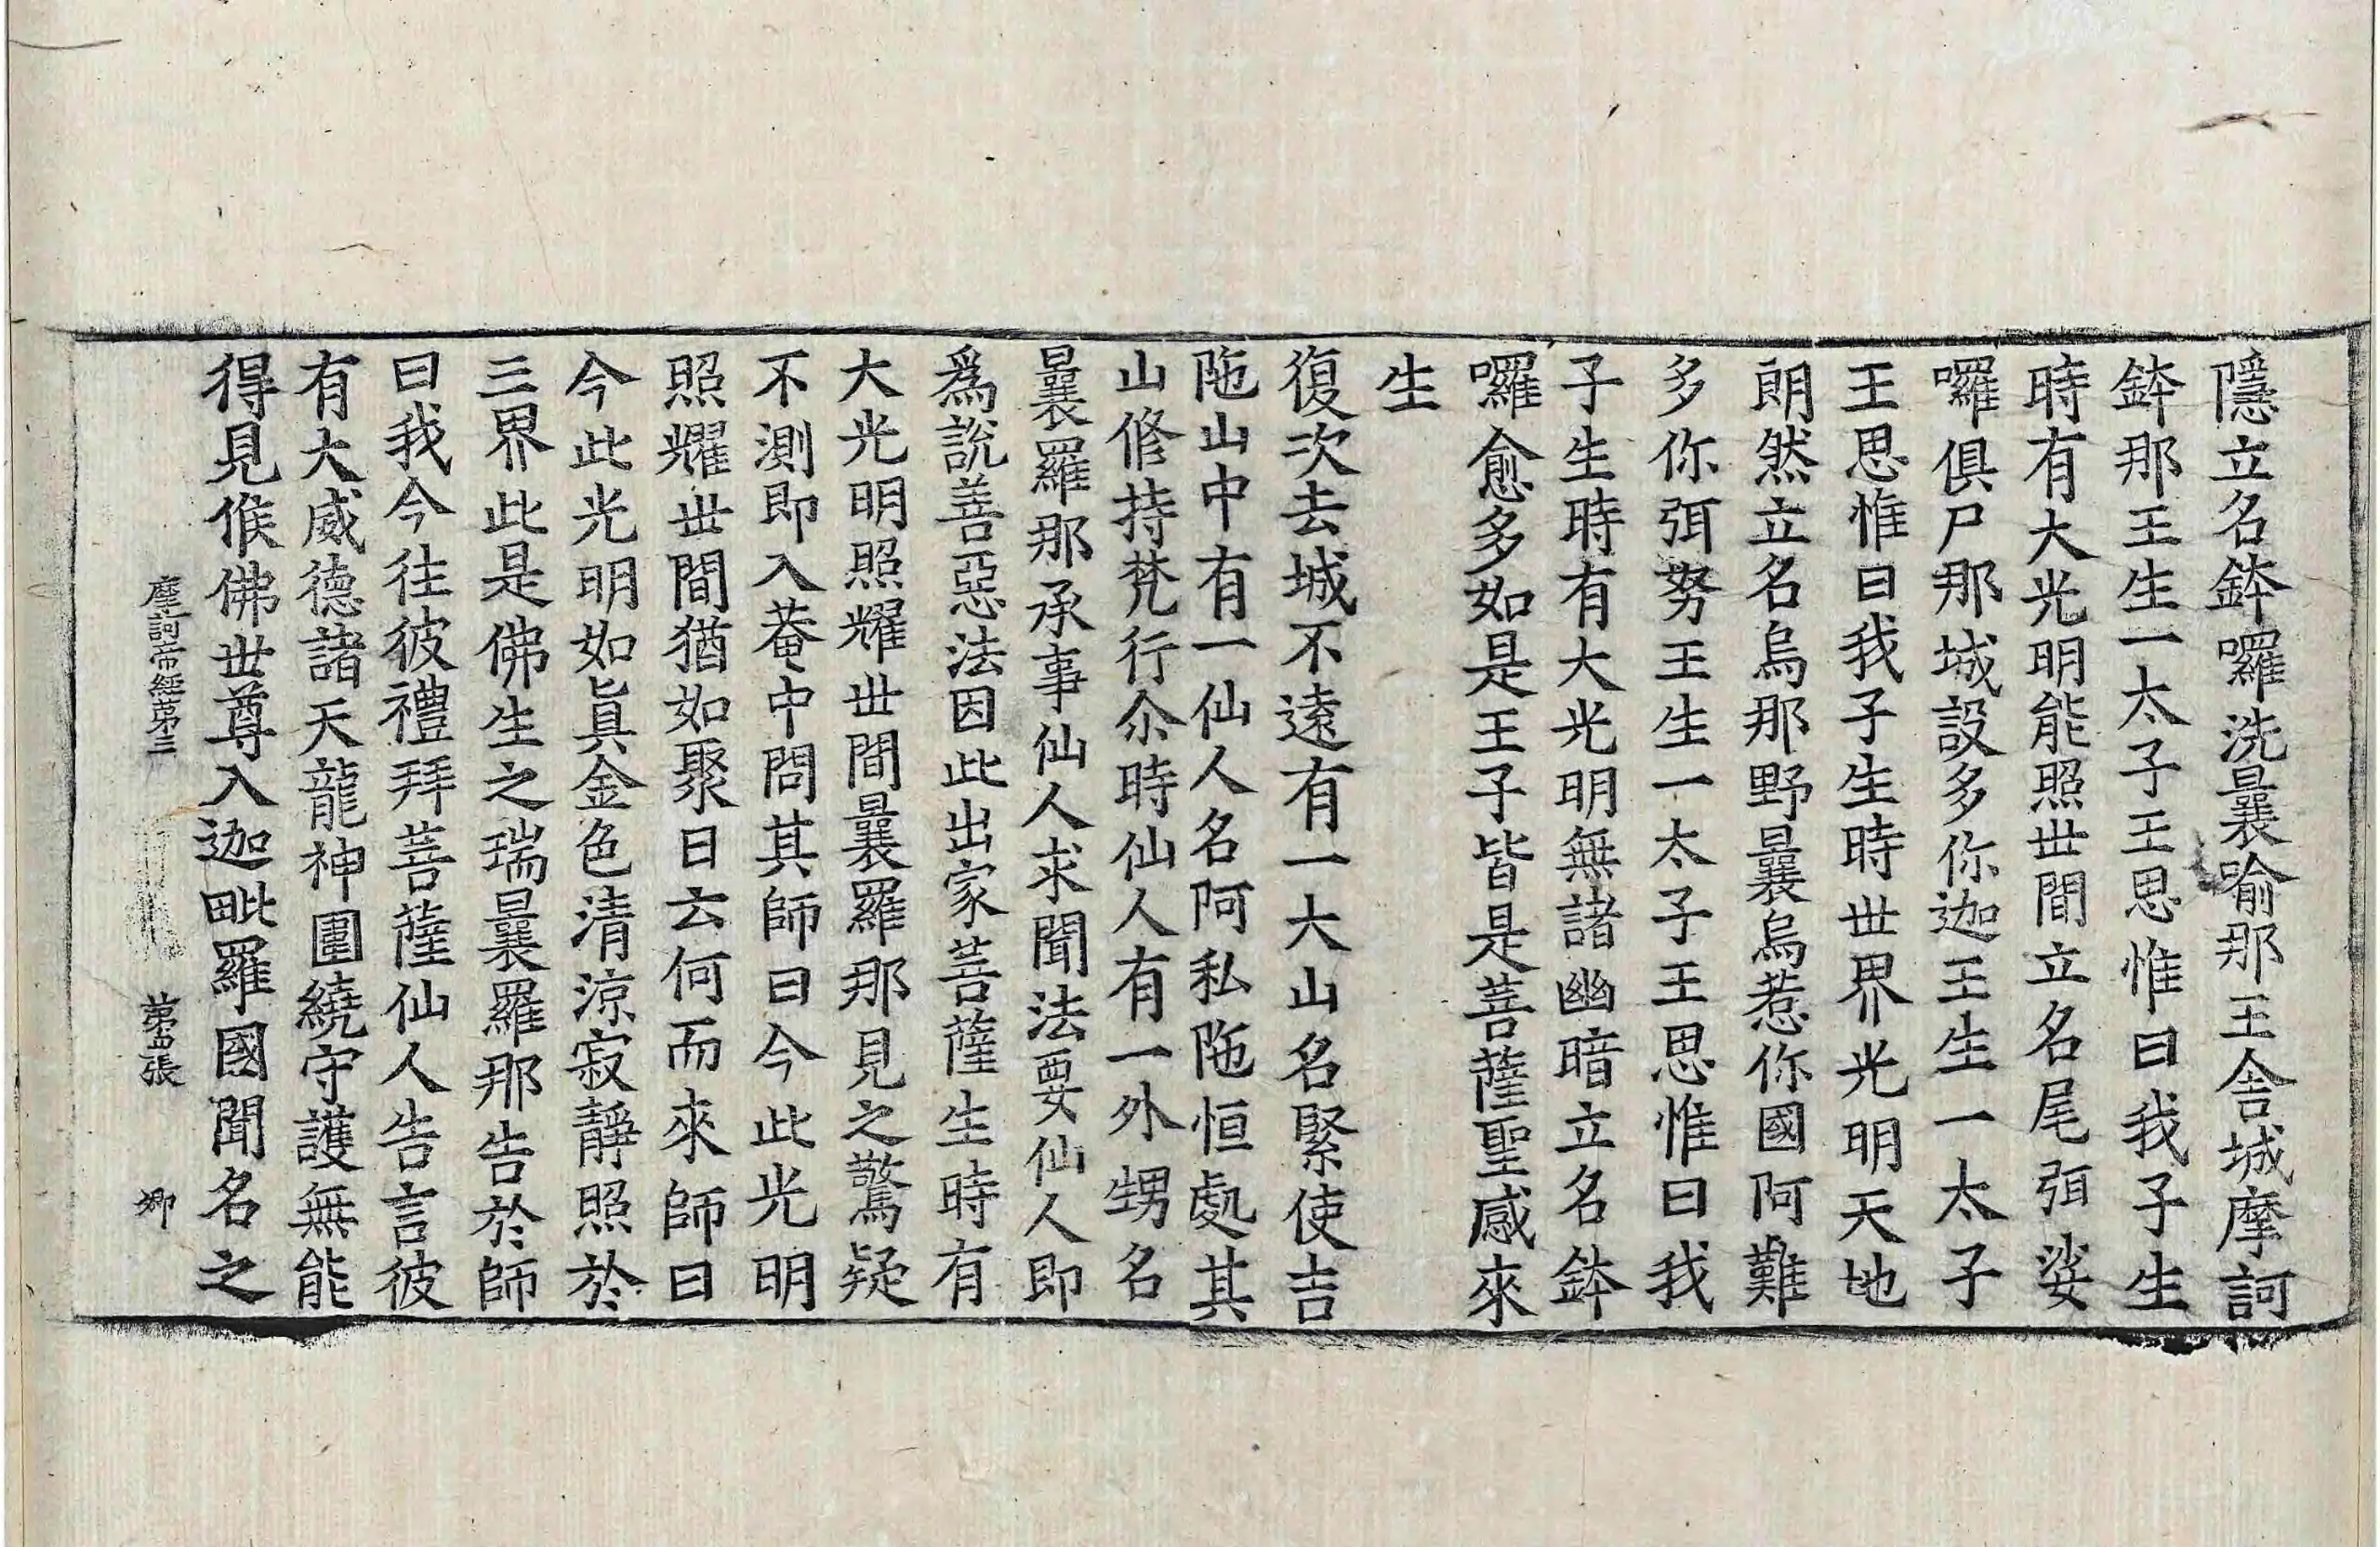 隱立名鉢囉洗曩喻那王舍城摩訶
鉢那王生一太子王思惟曰我子生
時有大光明能照世間立名尾弭娑
囉俱尸那城設多你迦王生一太子
王思惟曰我子生時世界光明天地
朗然立名烏那野曩烏惹你國阿難
多你弭努王生一太子王思惟曰我
子生時有大光明無諸幽暗立名鉢
囉愈多如是王子皆是菩薩聖感來
生
復次去城不遠有一大山名緊使吉
陁山中有一仙人名阿私陁恒處其
山修持梵行尒時仙人有一外甥名
曩羅那承事仙人求聞法要仙人即
爲說善惡法因此出家菩薩生時有
大光明照耀世間曩羅那見之驚疑
不測即入菴中問其師曰今此光明
照耀世間猶如聚日云何而來師曰
今此光明如眞金色清涼寂靜照於
三界此是佛生之瑞曩羅那告於師
曰我今往彼禮拜菩薩仙人告言彼
有大威德諸天龍神圍繞守護無能
得見候佛世尊入迦毗羅國聞名之
摩訶帝經第三 第四張 卿